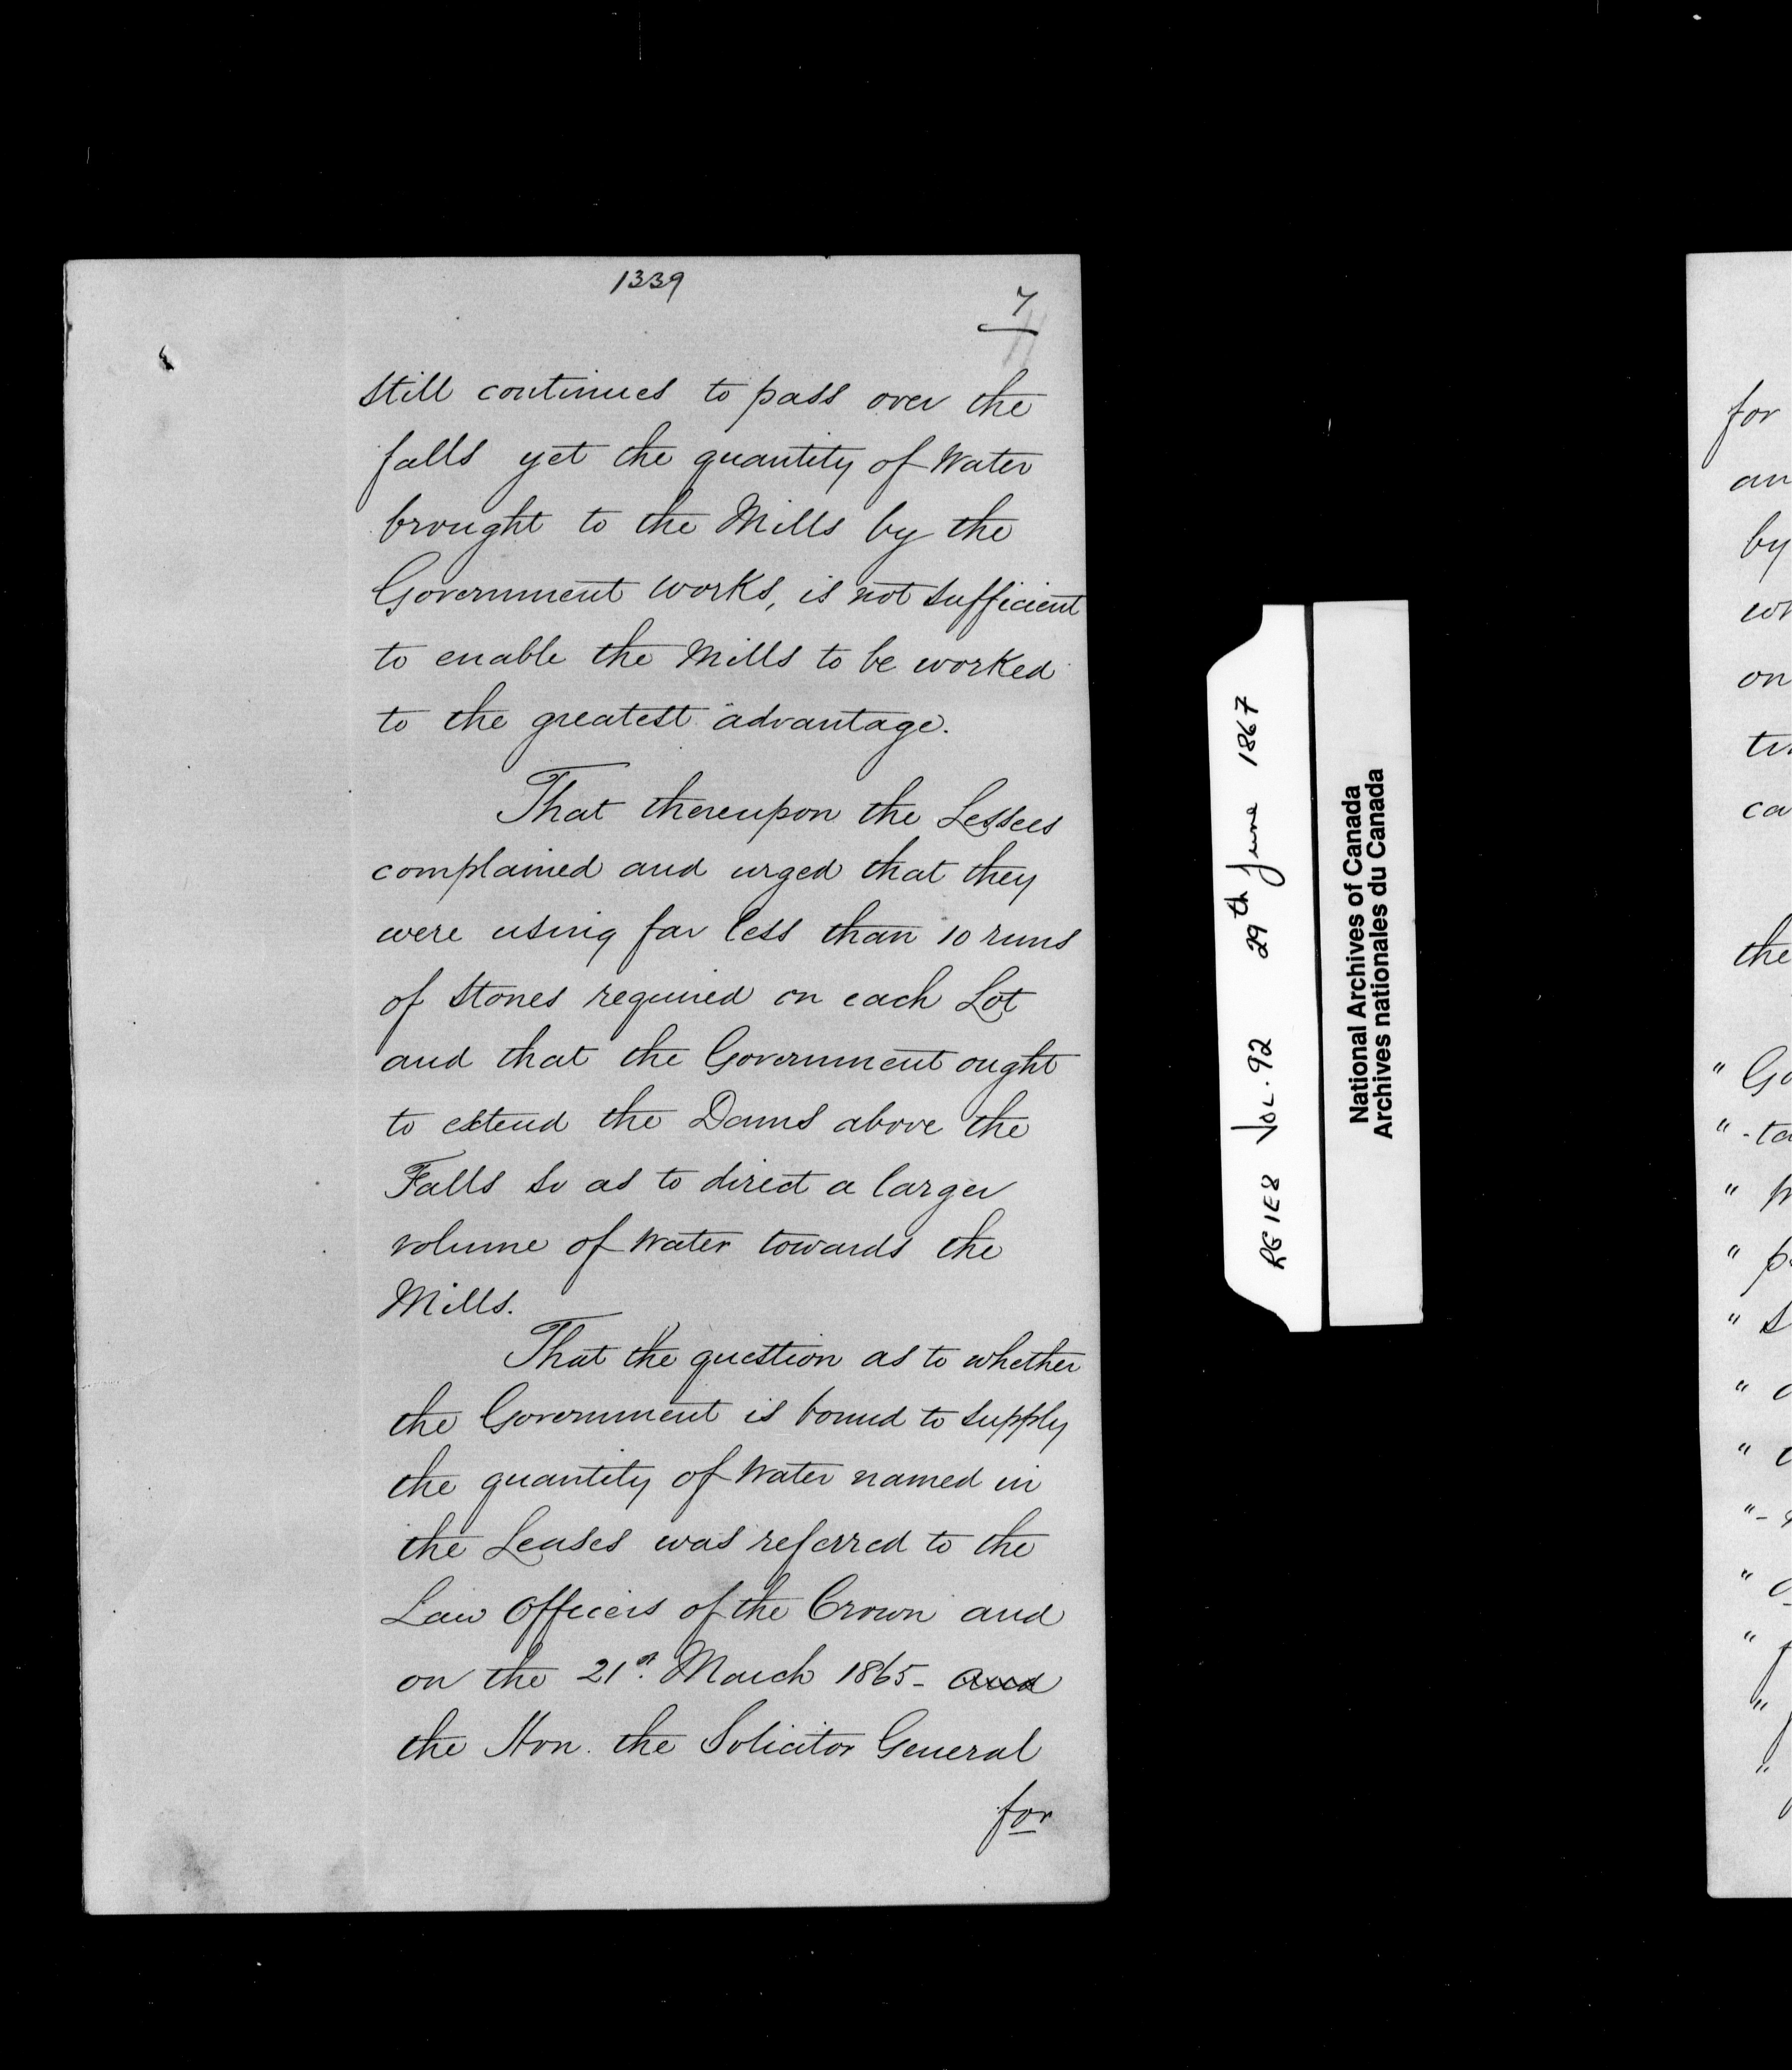 1339
7
still continues to pass over the
falls yet the quantity of Water
brought to the Mills by the
Government works, is not sufficient
to enable the Mills to be worked
to the greatest advantage.
That thereupon the Lessees
complained and urged that they
were using far less than 10 runs
of stones required on each Lot
and that the Government ought
to extend the Dams above the
Falls so as to direct a larger
volume of Water towards the
Mills.
That the question as to whether
the Government is bound to supply
the quantity of Water named in
the Leases was referred to the
Law Officers of the Crown and
on the 21st. March 1865 - and
the Hon. the Solicitor General
for
RG 1E8 VOL. 92 29th June 1867
National Archives of Canada
Archives nationales du Canada
for
an
by
on
ca
the
" Go